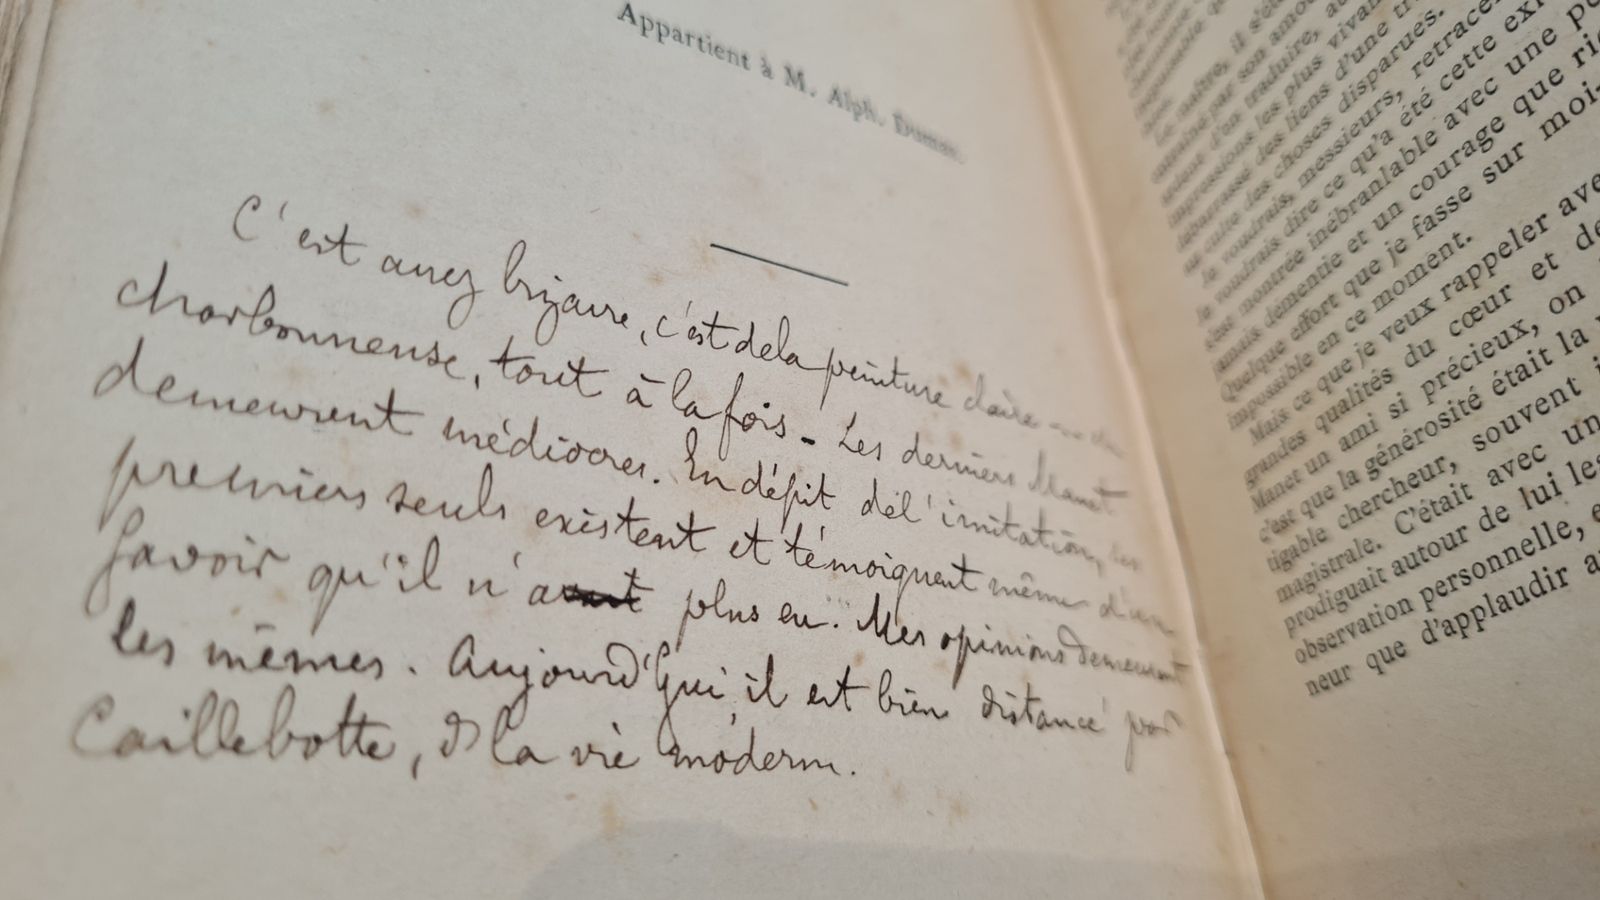 Appartient à M. Alph. Dumas.
C'est assez bizarre, c'est de la peinture claire
charbonneuse, tout à la fois - Les derniers Manet
demeurent médiocres. En dépit de l'imitation, les
premiers seuls existent et témoignent même d'un
savoir qu'il n'a plus eu. Mes opinions demeurent
les mêmes. Aujourd'hui, il est bien distancé par
Caillebotte, ds la vie moderne.
maître, il s'ét
entraîné par son amou
d'en traduire, au
impressions les plus vivan
débarrassé des liens d'une tr
au culte des choses disparues.
Je voudrais, messieurs, retracer
Je voudrais dire ce qu'a été cette exi
s'est montrée inébranlable avec une pe
jamais démentie et un courage que ri
Quelque effort que je fasse sur moi-
impossible en ce moment.
Mais ce que je veux rappeler ave
grandes qualités du cœur et de
Manet un ami si précieux, on
c'est que la générosité était la
tigable chercheur, souvent i
magistrale. C'était avec un
prodiguait autour de lui les
observation personnelle, e
neur que d'applaudir a